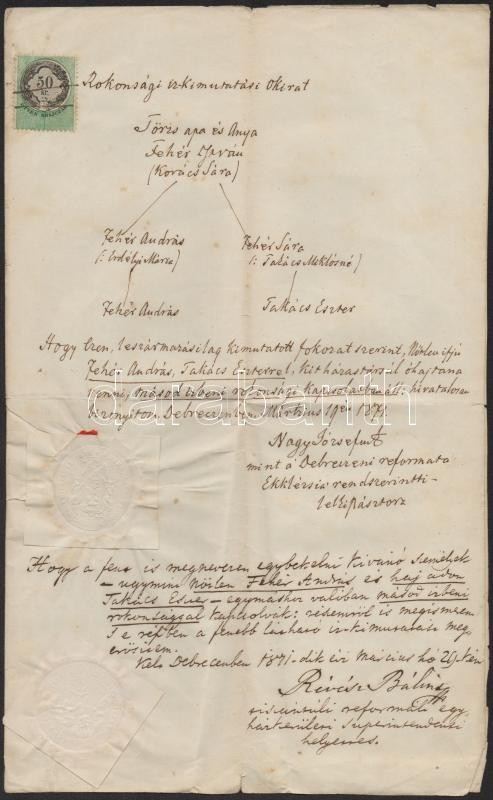 50
KR.
Rokonsági iz-kimutatási Okirat
Törzs apa és Anya
Fehér István
(Kovács Sára)
Fehér András Fehér Sára
(: Erdélyi Mária) (: Takács Miklósné)
Fehér András Takács Eszter
Hogy Ezen, leszármazásilag kimutatott fokozat szerint, Nőtlen ifju
Fehér András, Takács Eszterrel, kit házastársául óhajtana
venni, másod izbeni rokonsági kapcsolatban áll: hivatalosan
bizonyitom. Debreczenben Mártius 19én 1871.
Nagy József
mint a Debreczeni reformata
Ekklézsia rendszerinti
lelkipásztora
darabanth
Hogy a fent is megnevezett egybekelni kivánó személyek
– ugymint nőtlen Fehér András és hajadon
Takács Eszter – egymáshoz valóban másod izbeni
rokonsággal kapcsolvák: részemről is megismerem
s e részben a fenebb látható iz-kimutatást meg
erősitem.
Kelt Debreczenben 1871-dik évi Március hó 20-kán
Révész Bálint
tiszántúli reformált egy
házkerületi superintendensi
helyettes.